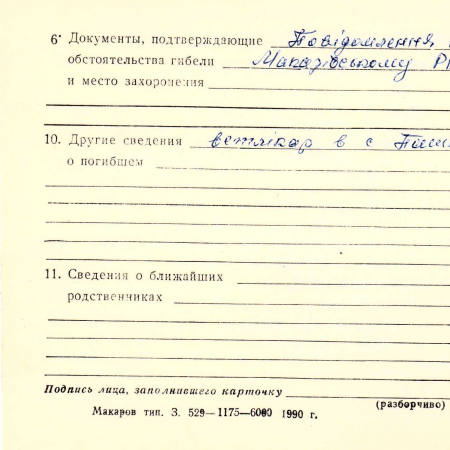 6. Документы, подтверждающие Повідомлення,
обстоятельства гибели Макарівському Р
и место захоронения
10. Другие сведения ветлікар в с
о погибшем
11. Сведения о ближайших
родственниках
Подпись лица, заполнившего карточку
(разборчиво)
Макаров тип. З. 529—1175—6000 1990 г.